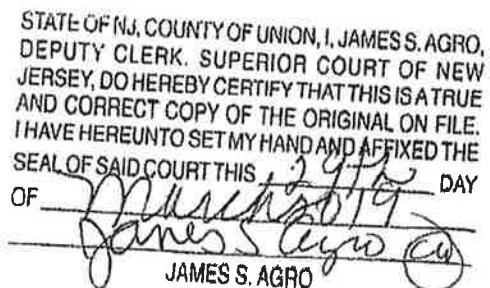 STATE OF NJ, COUNTY OF UNION, I, JAMES S. AGRO,
DEPUTY CLERK. SUPERIOR COURT OF NEW
JERSEY, DO HEREBY CERTIFY THAT THIS IS A TRUE
AND CORRECT COPY OF THE ORIGINAL ON FILE.
I HAVE HEREUNTO SET MY HAND AND AFFIXED THE
SEAL OF SAID COURT THIS 29th DAY
OF March 2019
James S Agro
JAMES S. AGRO